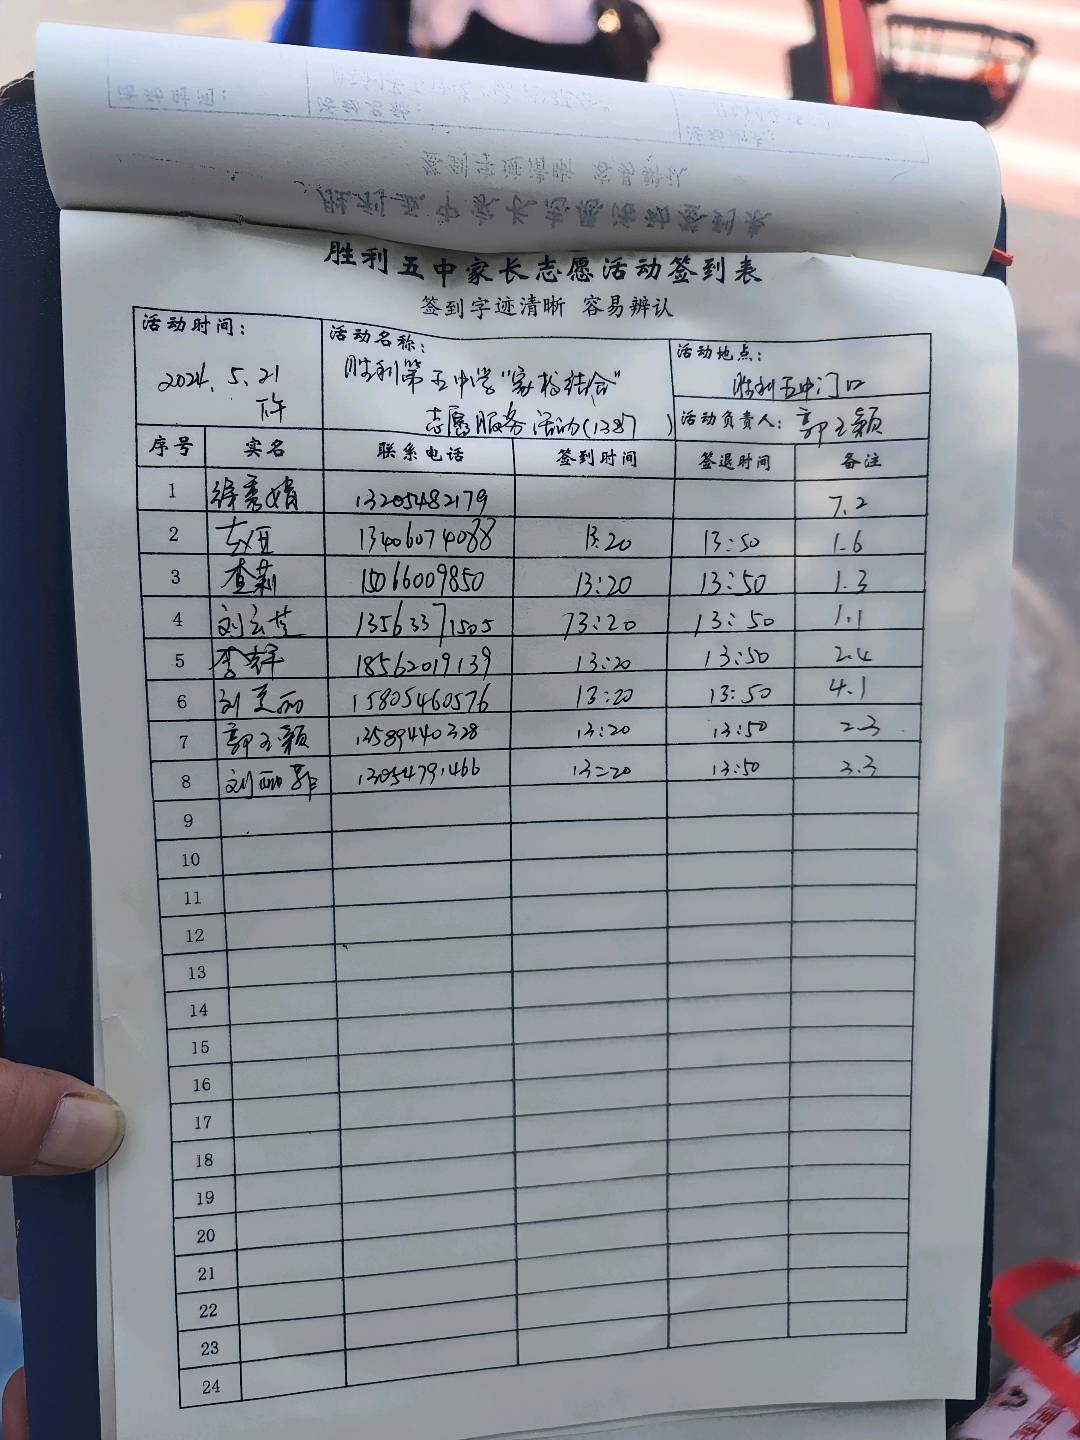 胜利五中家长志愿活动签到表
签到字迹清晰 容易辨认
活动时间：
2024.5.21
下午
活动名称：
胜利第五中学"家校结合"
志愿服务活动(1387)
活动地点：
胜利五中门口
活动负责人：郭玉颖
序号 实名 联系电话 签到时间 签退时间 备注
1 徐秀娟 13205482179 7.2
2 13406074088 13:20 13:50 1.6
3 查莉 15066009850 13:20 13:50 1.3
4 刘云芝 13563371505 13:20 13:50 1.1
5 李辉 18562019139 13:20 13:50 2.4
6 刘美丽 15805460576 13:20 13:50 4.1
7 郭玉颖 13589440328 13:20 13:50 2.3
8 13054791466 13:20 13:50 3.3
9
10
11
12
13
14
15
16
17
18
19
20
21
22
23
24